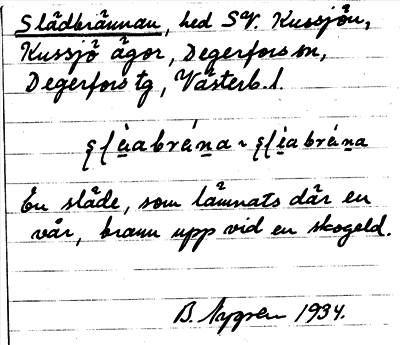 Slädbrännan, hed SV. Kussjön,
Kussjö ägor, Degerfors sn,
Degerfors tg, Västerb. l.
En släde, som lämnats där en
vår, brann upp vid en skogeld.
B. Nygren 1934.